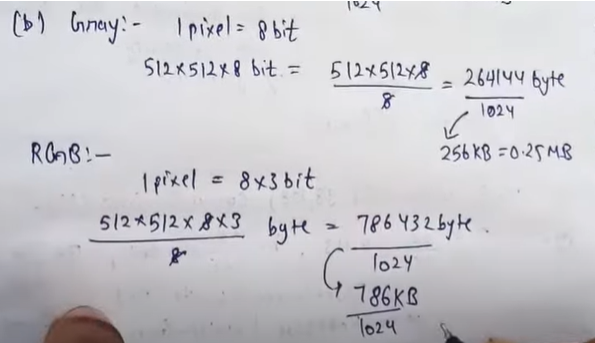 1024
(b) Gray:- 1 pixel = 8 bit
512×512×8 bit = 512×512×8 / 8 = 264144 byte / 1024
256KB = 0.25MB
RGB:-
1 pixel = 8×3 bit
512×512×8×3 / 8 byte = 786432 byte. / 1024
786KB / 1024